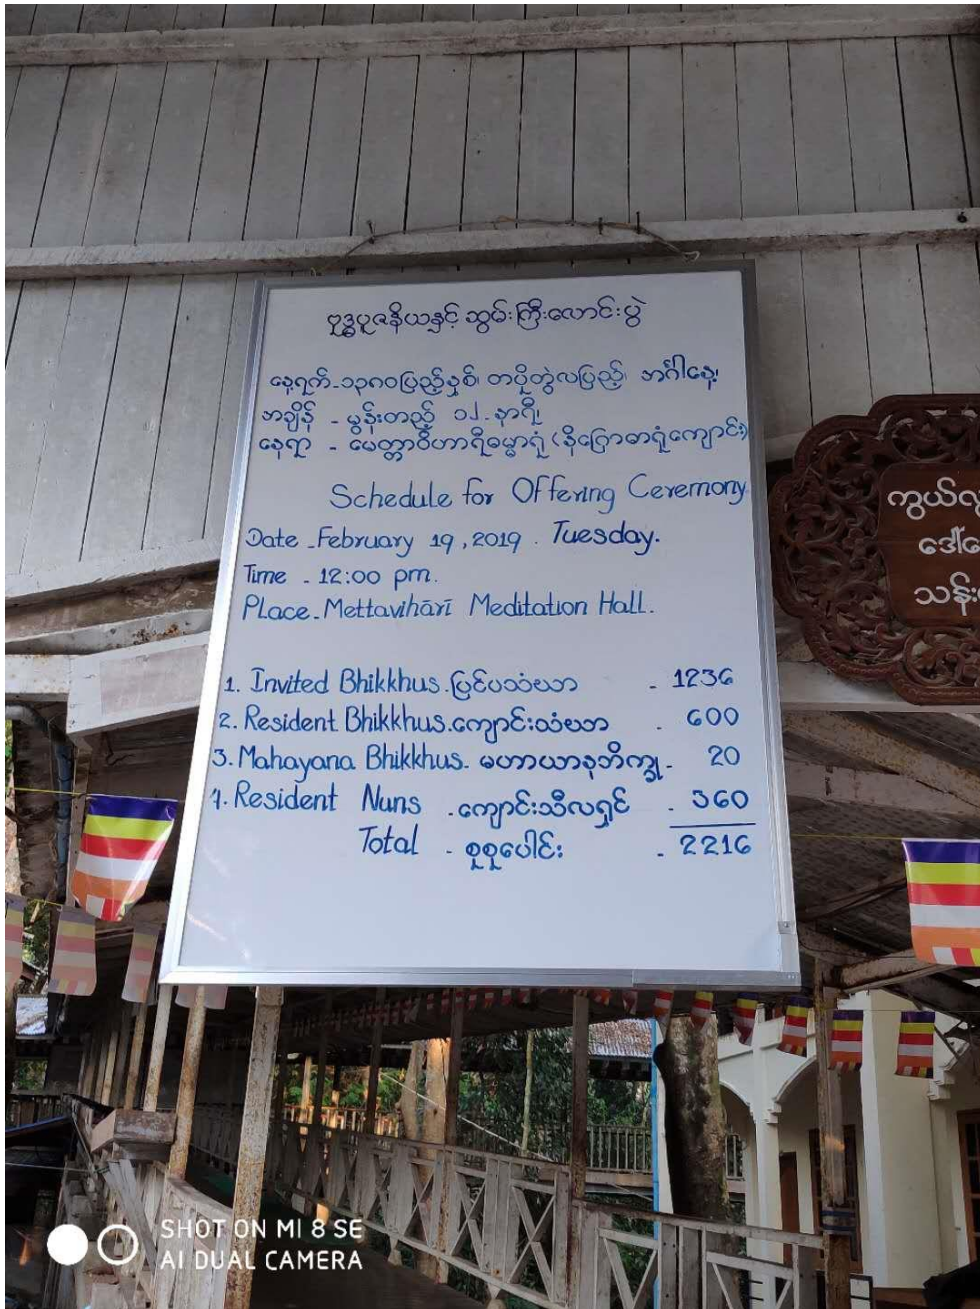 ဗုဒ္ဓပူဇနိယနှင့် ဆွမ်းကြီးလောင်းပွဲ
နေ့ရက်-၁၃၈၀ပြည့်နှစ်၊ တပို့တွဲလပြည့်၊ အင်္ဂါနေ့၊
အချိန် - မွန်းတည့် ၁၂-နာရီ၊
နေရာ - မေတ္တာဝိဟာရီဓမ္မာရုံ (နိဂြောဓာရုံကျောင်း)
Schedule for Offering Ceremony
Date - February 19, 2019. Tuesday.
Time - 12:00 pm.
Place - Mettavihārī Meditation Hall.
1. Invited Bhikkhus. ပြင်ပသံဃာ - 1236
2. Resident Bhikkhus. ကျောင်းသံဃာ - 600
3. Mahayana Bhikkhus - မဟာယာနဘိက္ခု - 20
4. Resident Nuns - ကျောင်းသီလရှင် - 360
Total - စုစုပေါင်း - 2216
SHOT ON MI 8 SE
AI DUAL CAMERA